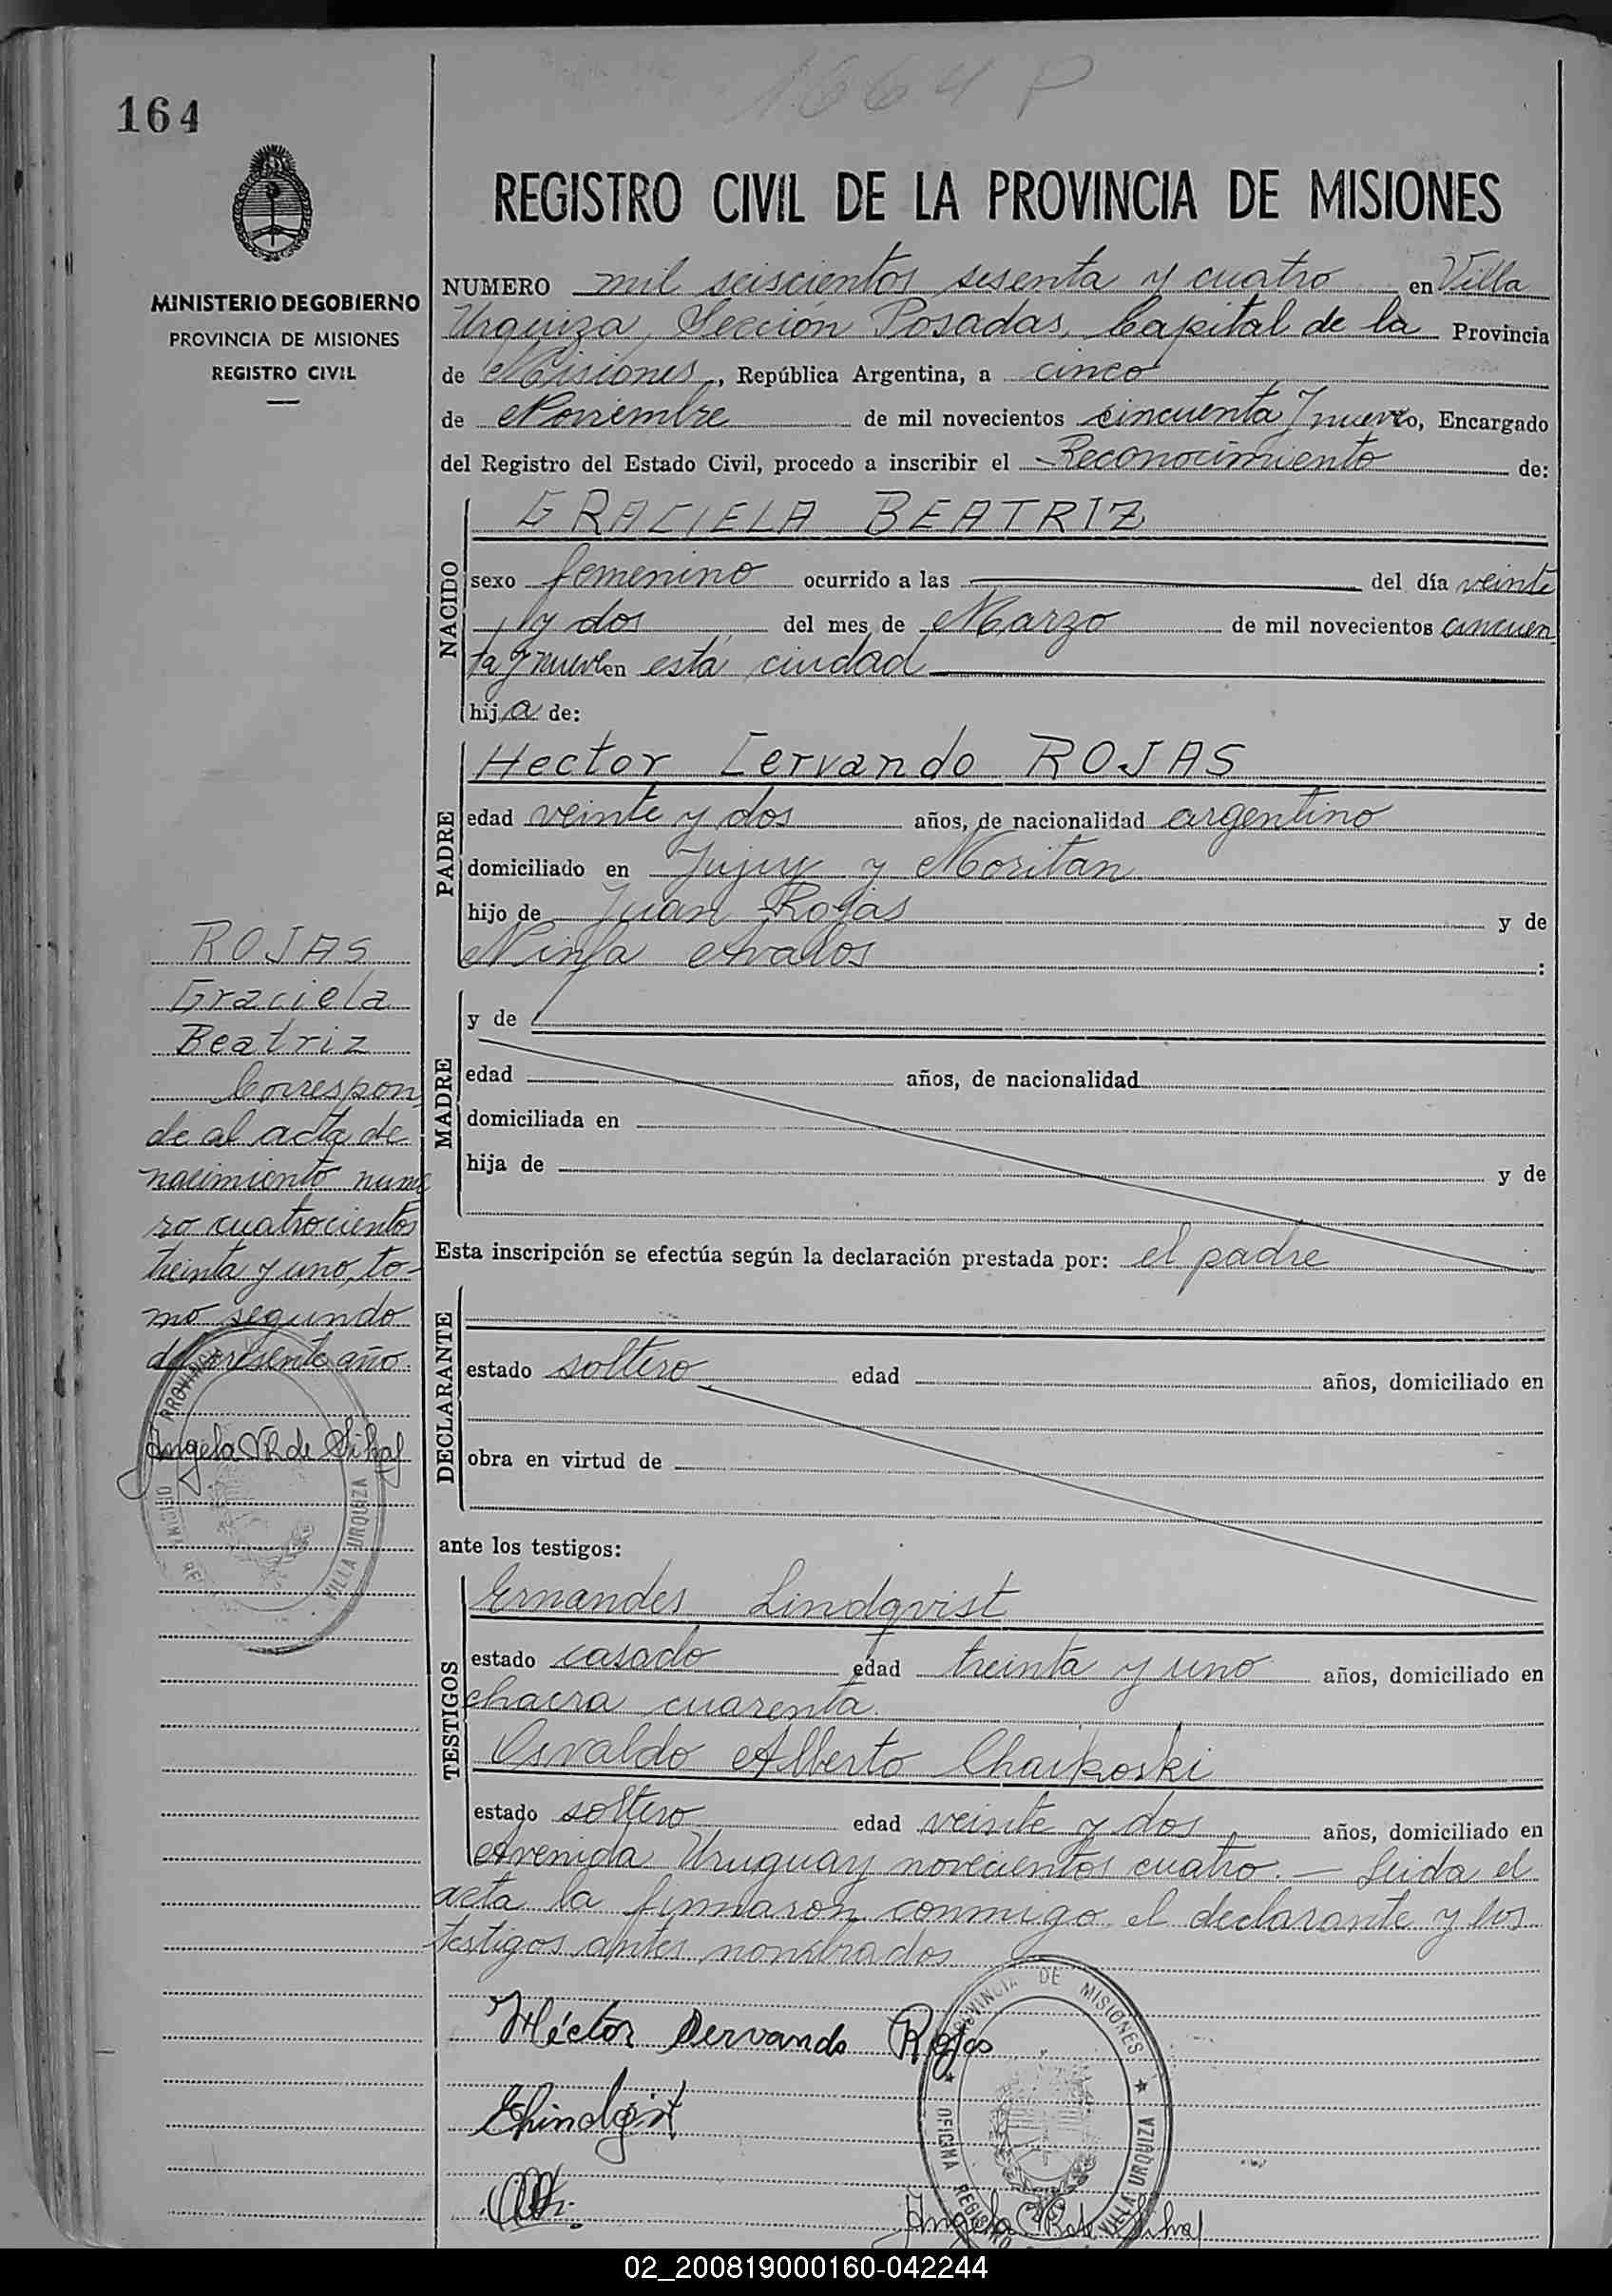 1664 P
164
REGISTRO CIVIL DE LA PROVINCIA DE MISIONES
MINISTERIO DE GOBIERNO
PROVINCIA DE MISIONES
REGISTRO CIVIL
NUMERO mil seiscientos sesenta y cuatro en Villa
Urquiza, Sección Posadas, Capital de la Provincia
de Misiones, República Argentina, a cinco
de Noviembre de mil novecientos cincuenta y nueve, Encargado
del Registro del Estado Civil, procedo a inscribir el Reconocimiento de:
NACIDO
GRACIELA BEATRIZ
sexo femenino ocurrido a las del día veinte
y dos del mes de Marzo de mil novecientos cincuen
ta y nueve en esta ciudad
hija de:
PADRE
Hector Cervando ROJAS
edad veinte y dos años, de nacionalidad argentino
domiciliado en Jujuy y Moritan
hijo de Juan Rojas y de
Ninfa Avalos :
MADRE
y de
edad años, de nacionalidad
domiciliada en
hija de y de
Esta inscripción se efectúa según la declaración prestada por: el padre
DECLARANTE
estado soltero edad años, domiciliado en
obra en virtud de
ante los testigos:
TESTIGOS
Ernandes Lindqvist
estado casado edad treinta y uno años, domiciliado en
chacra cuarenta.
Osvaldo Alberto Chaikoski
estado soltero edad veinte y dos años, domiciliado en
Avenida Uruguay novecientos cuatro. — Leida el
acta la firmaron conmigo el declarante y los
testigos antes nombrados
Héctor Servando Rojas
PROVINCIA DE MISIONES
OFICINA REGISTRO
VILLA URQUIZA
ROJAS
Graciela
Beatriz
Correspon
de al acta de
nacimiento nume
ro cuatrocientos
treinta y uno, to-
mo segundo
del presente año.
PROVINCIA
VILLA URQUIZA
02_200819000160-042244